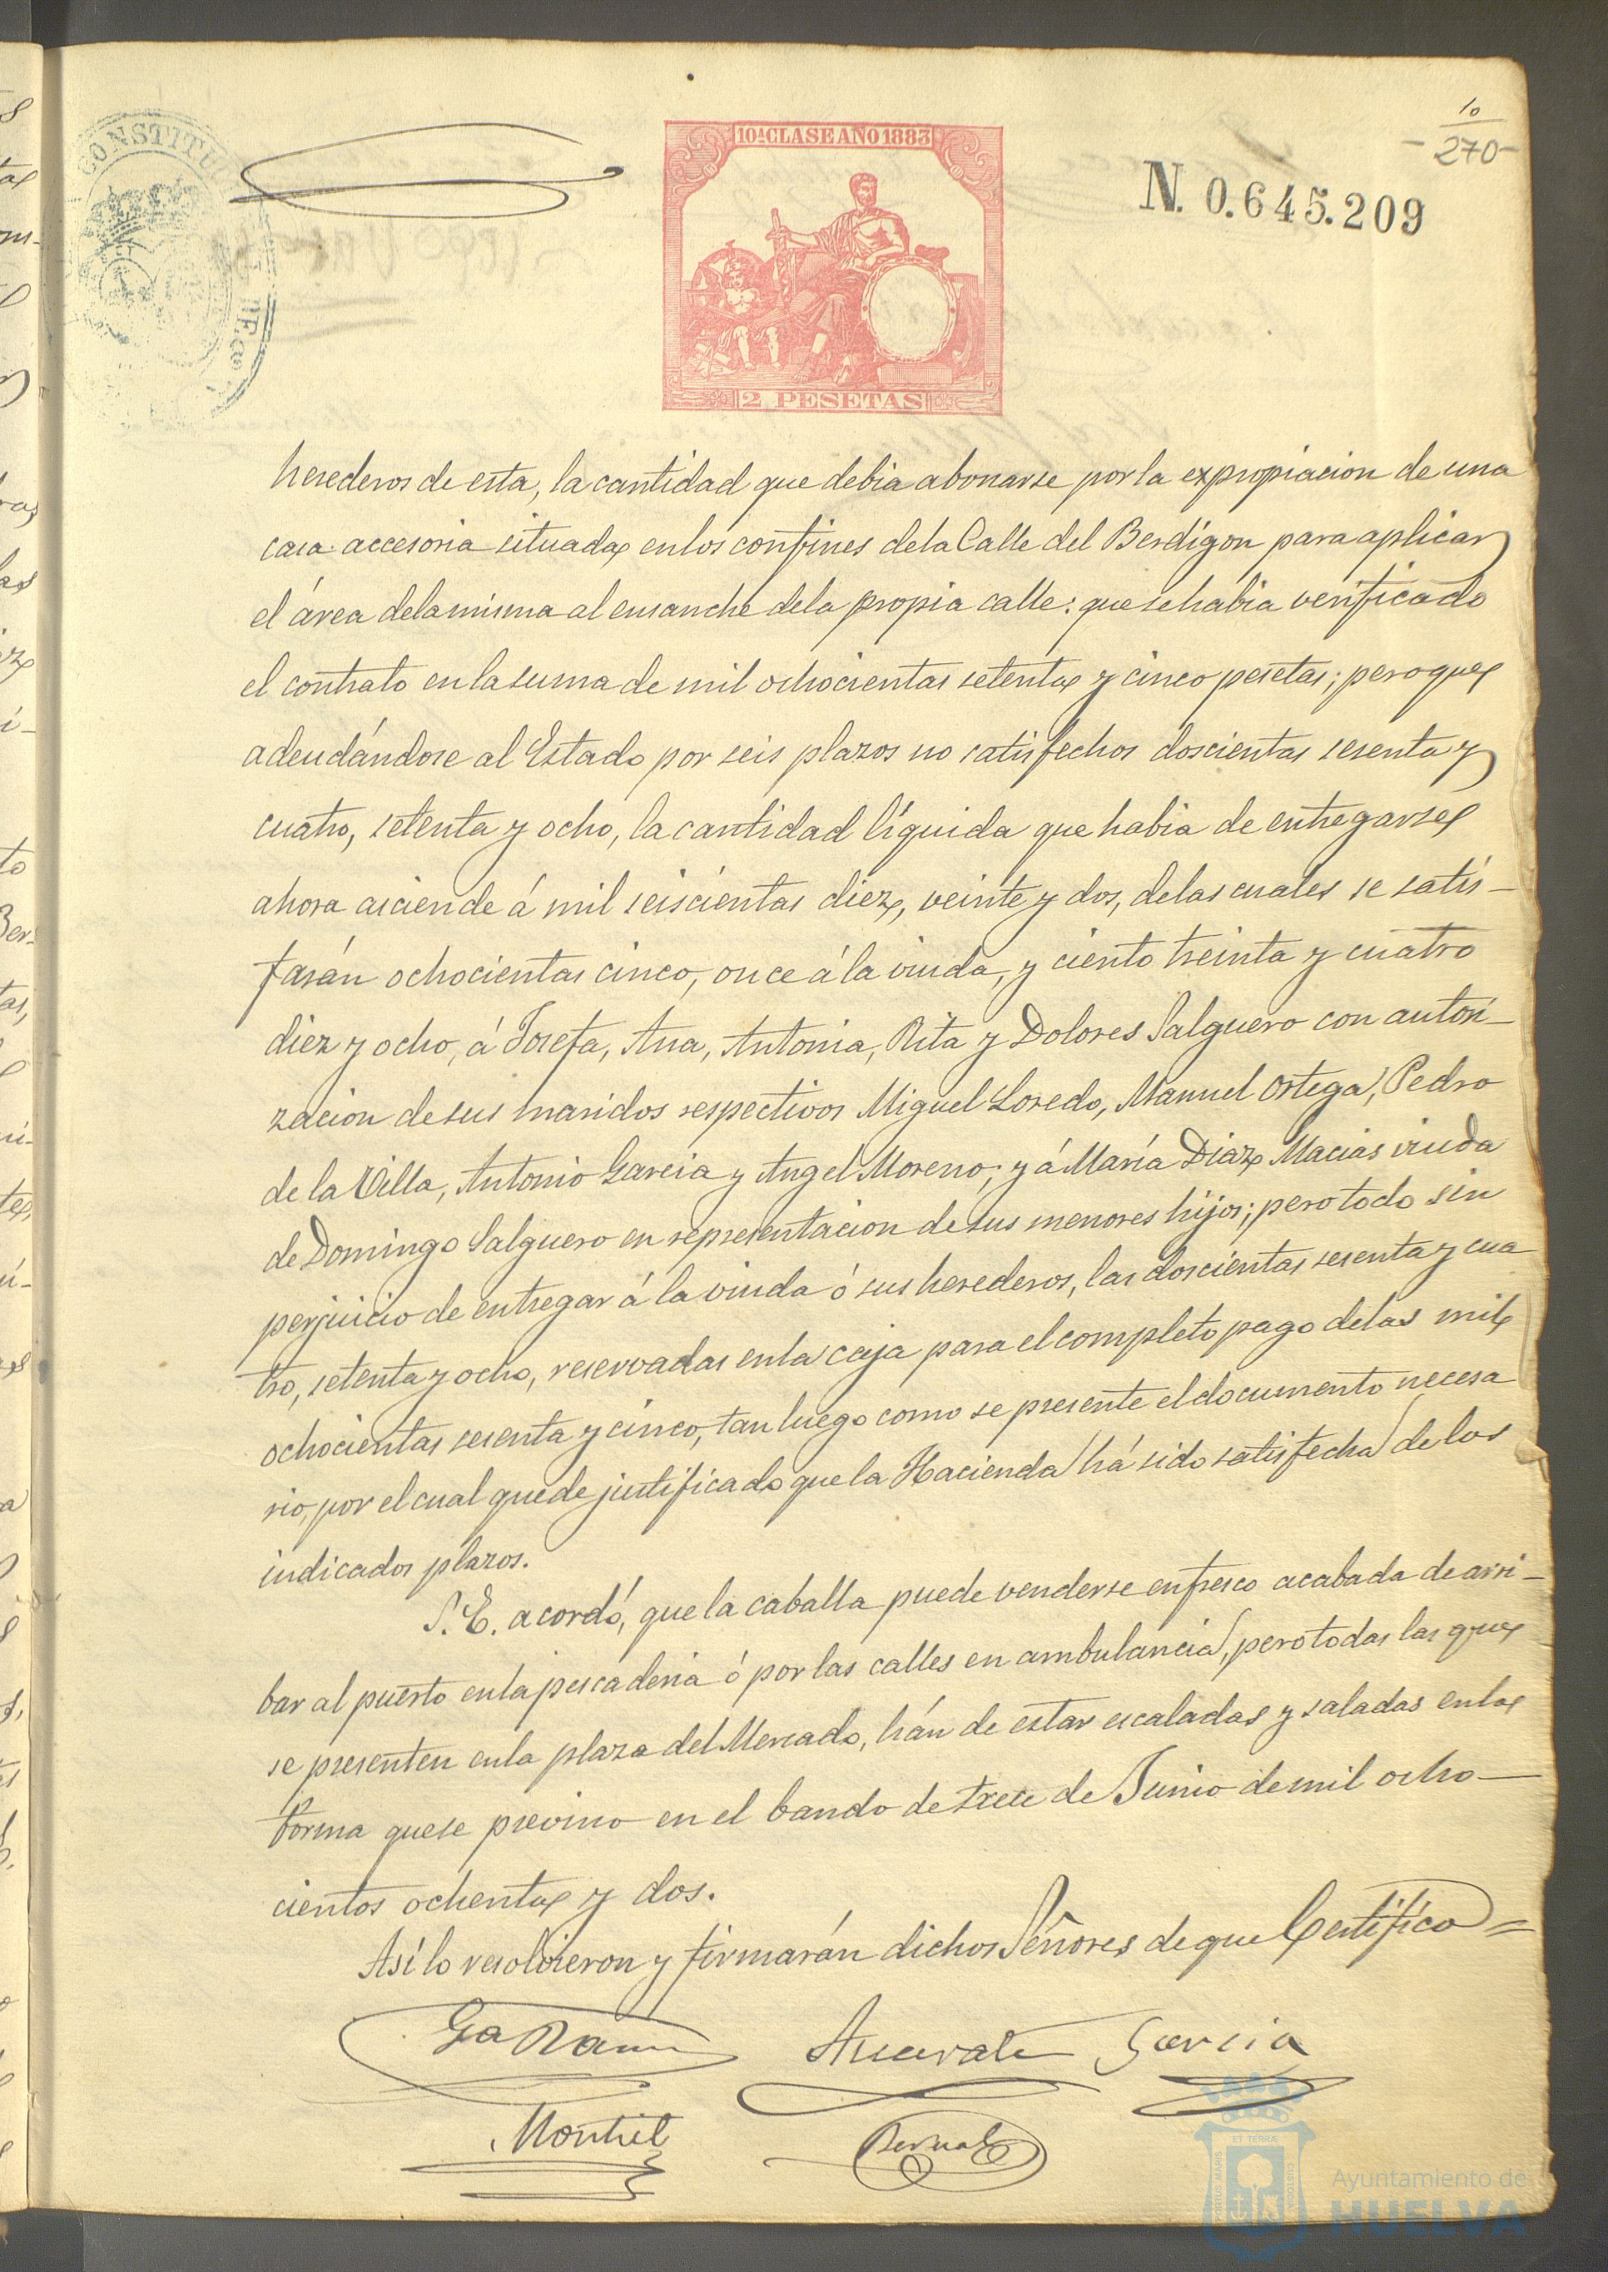 10
-270-
CONSTITU
10ª CLASE AÑO 1883
N. 0.645.209
2 PESETAS
herederos de esta, la cantidad que debia abonarse por la expropiacion de una
casa accesoria situada en los confines de la Calle del Berdigon para aplicar
el área de la misma al ensanche de la propia calle: que se habia verificado
el contrato en la suma de mil ochocientas setenta y cinco pesetas; pero que
adeudándose al Estado por seis plazos no satisfechos doscientas sesenta y
cuatro, setenta y ocho, la cantidad líquida que habia de entregarse
ahora asciende á mil seiscientas diez, veinte y dos, de las cuales se satis-
farán ochocientas cinco, once á la viuda, y ciento treinta y cuatro
diez y ocho, á Josefa, Ana, Antonia, Rita y Dolores Salguero con autori-
zacion de sus maridos respectivos Miguel Loredo, Manuel Ortega, Pedro
de la Villa, Antonio Garcia y Angel Moreno; y á María Diaz Macias viuda
de Domingo Salguero en representacion de sus menores hijos; pero todo sin
perjuicio de entregar á la viuda ó sus herederos, las doscientas sesenta y cua
tro, setenta y ocho, reservadas en la caja para el completo pago de las mil
ochocientas sesenta y cinco, tan luego como se presente el documento necesa
rio, por el cual quede justificado que la Hacienda há sido satisfecha de los
indicados plazos.
S. E. acordó, que la caballa puede venderse en fresco acabada de arri-
bar al puerto en la pescaderia ó por las calles en ambulancia, pero todas las que
se presenten en la plaza del Mercado, hán de estar escaladas y saladas en la
forma que se previno en el bando de trece de Junio de mil ocho-
cientos ochenta y dos.
Asi lo resolvieron y firmarán dichos Señores de que Certifico=
Garcia
Montiel
Bernal
Ayuntamiento de
HUELVA